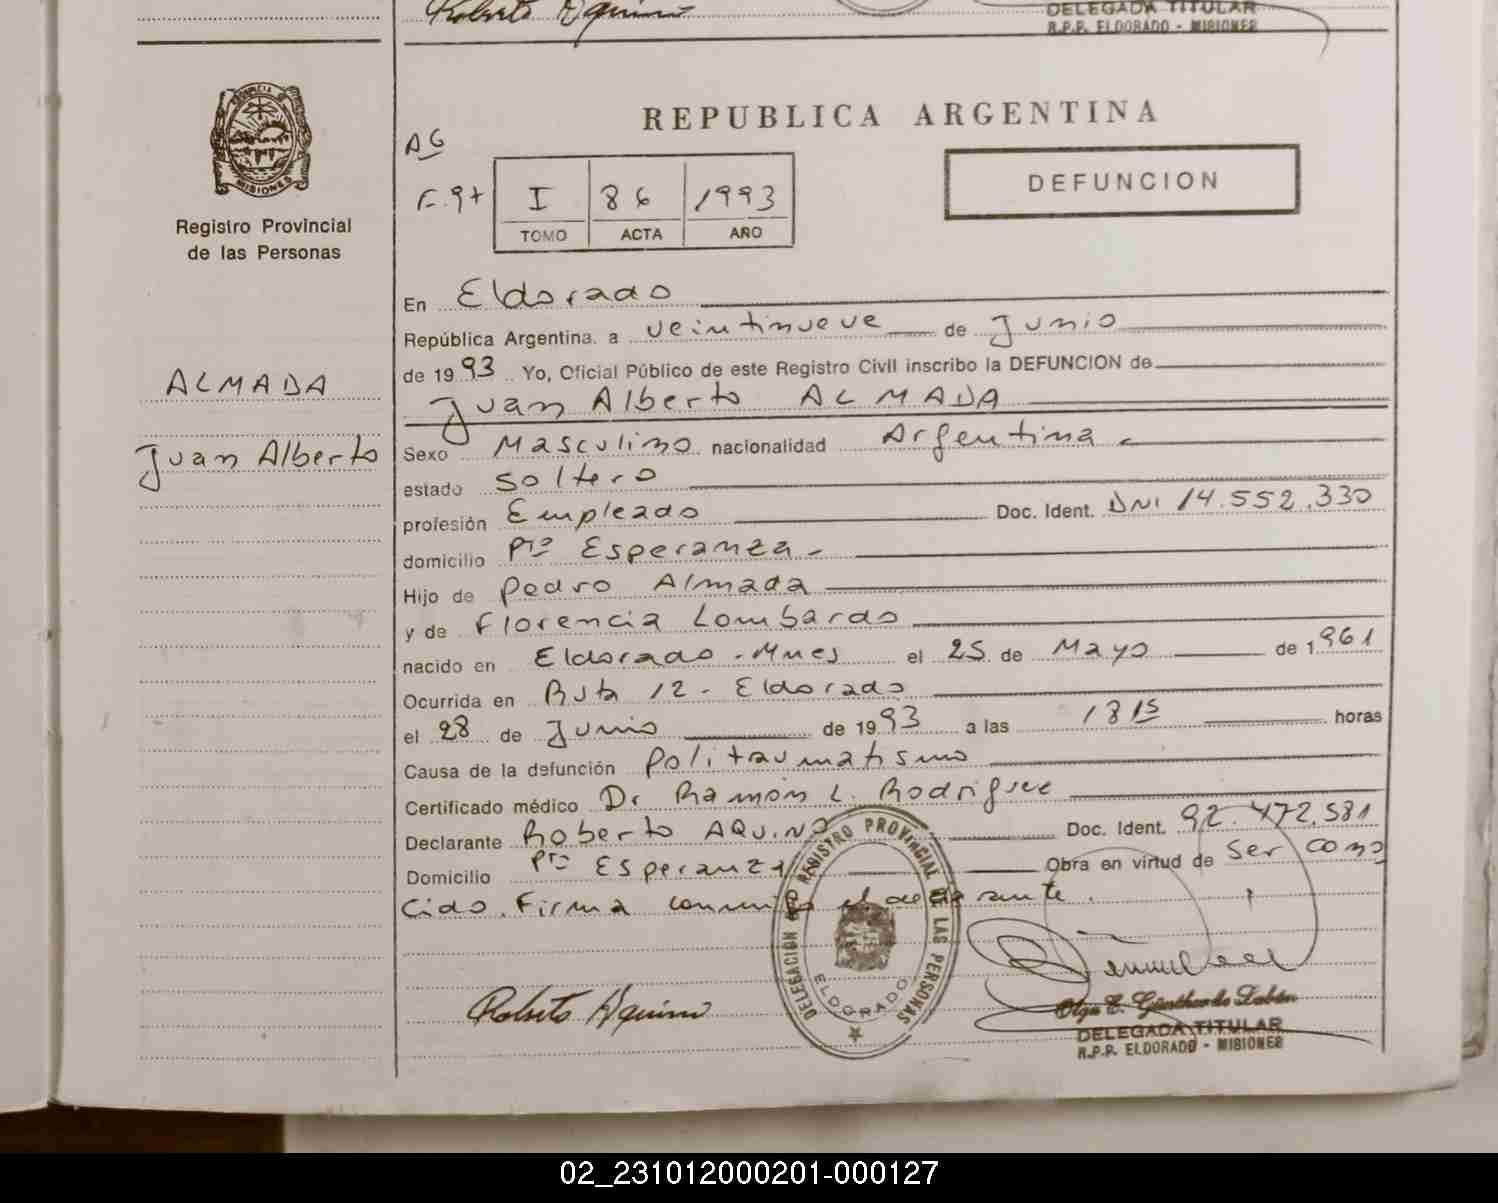 Roberto Aquino
DELEGADA TITULAR
R.P.P. ELDORADO - MISIONES
PROVINCIA DE
MISIONES
Registro Provincial
de las Personas
REPUBLICA ARGENTINA
AG
F. 97
I 86 1993
TOMO ACTA AÑO
DEFUNCION
ALMADA
Juan Alberto
En Eldorado
República Argentina. a veintinueve de Junio
de 1993 Yo, Oficial Público de este Registro Civil inscribo la DEFUNCION de
Juan Alberto ALMADA
Sexo Masculino nacionalidad Argentina -
estado Soltero
profesión Empleado Doc. Ident. DNI 14.552.330
domicilio Pto Esperanza -
Hijo de Pedro Almada
y de Florencia Lombardo
nacido en Eldorado - Mnes el 25 de Mayo de 1961
Ocurrida en Ruta 12 - Eldorado
el 28 de Junio de 1993 a las 1815 horas
Causa de la defunción Politraumatismo
Certificado médico Dr Ramón L. Rodrigue
Declarante Roberto AQUINO Doc. Ident. 92.472.581
Domicilio Pto Esperanza Obra en virtud de ser cono
cido. Firma conmigo el declarante.
DELEGACION REGISTRO PROVINCIAL DE LAS PERSONAS
ELDORADO
Roberto Aquino
Olga E. Günther de Labán
DELEGADA TITULAR
R.P.P. ELDORADO - MISIONES
02_231012000201-000127